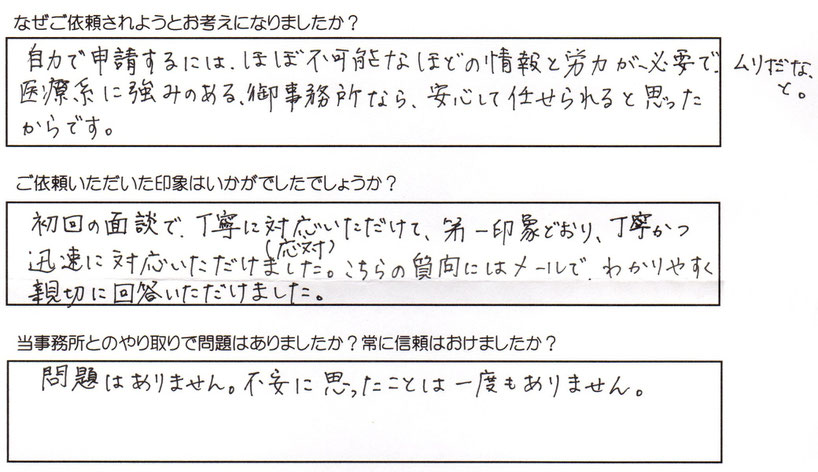 なぜご依頼されようとお考えになりましたか？
自力で申請するには、ほぼ不可能なほどの情報と労力が必要で、ムリだな、と。
医療系に強みのある、御事務所なら、安心して任せられると思った
からです。
ご依頼いただいた印象はいかがでしたでしょうか？
初回の面談で、丁寧に対応いただけて、第一印象どおり、丁寧かつ
(応対)
迅速に対応いただけました。こちらの質問にはメールで、わかりやすく
親切に回答いただけました。
当事務所とのやり取りで問題はありましたか？常に信頼はおけましたか？
問題はありません。不安に思ったことは一度もありません。